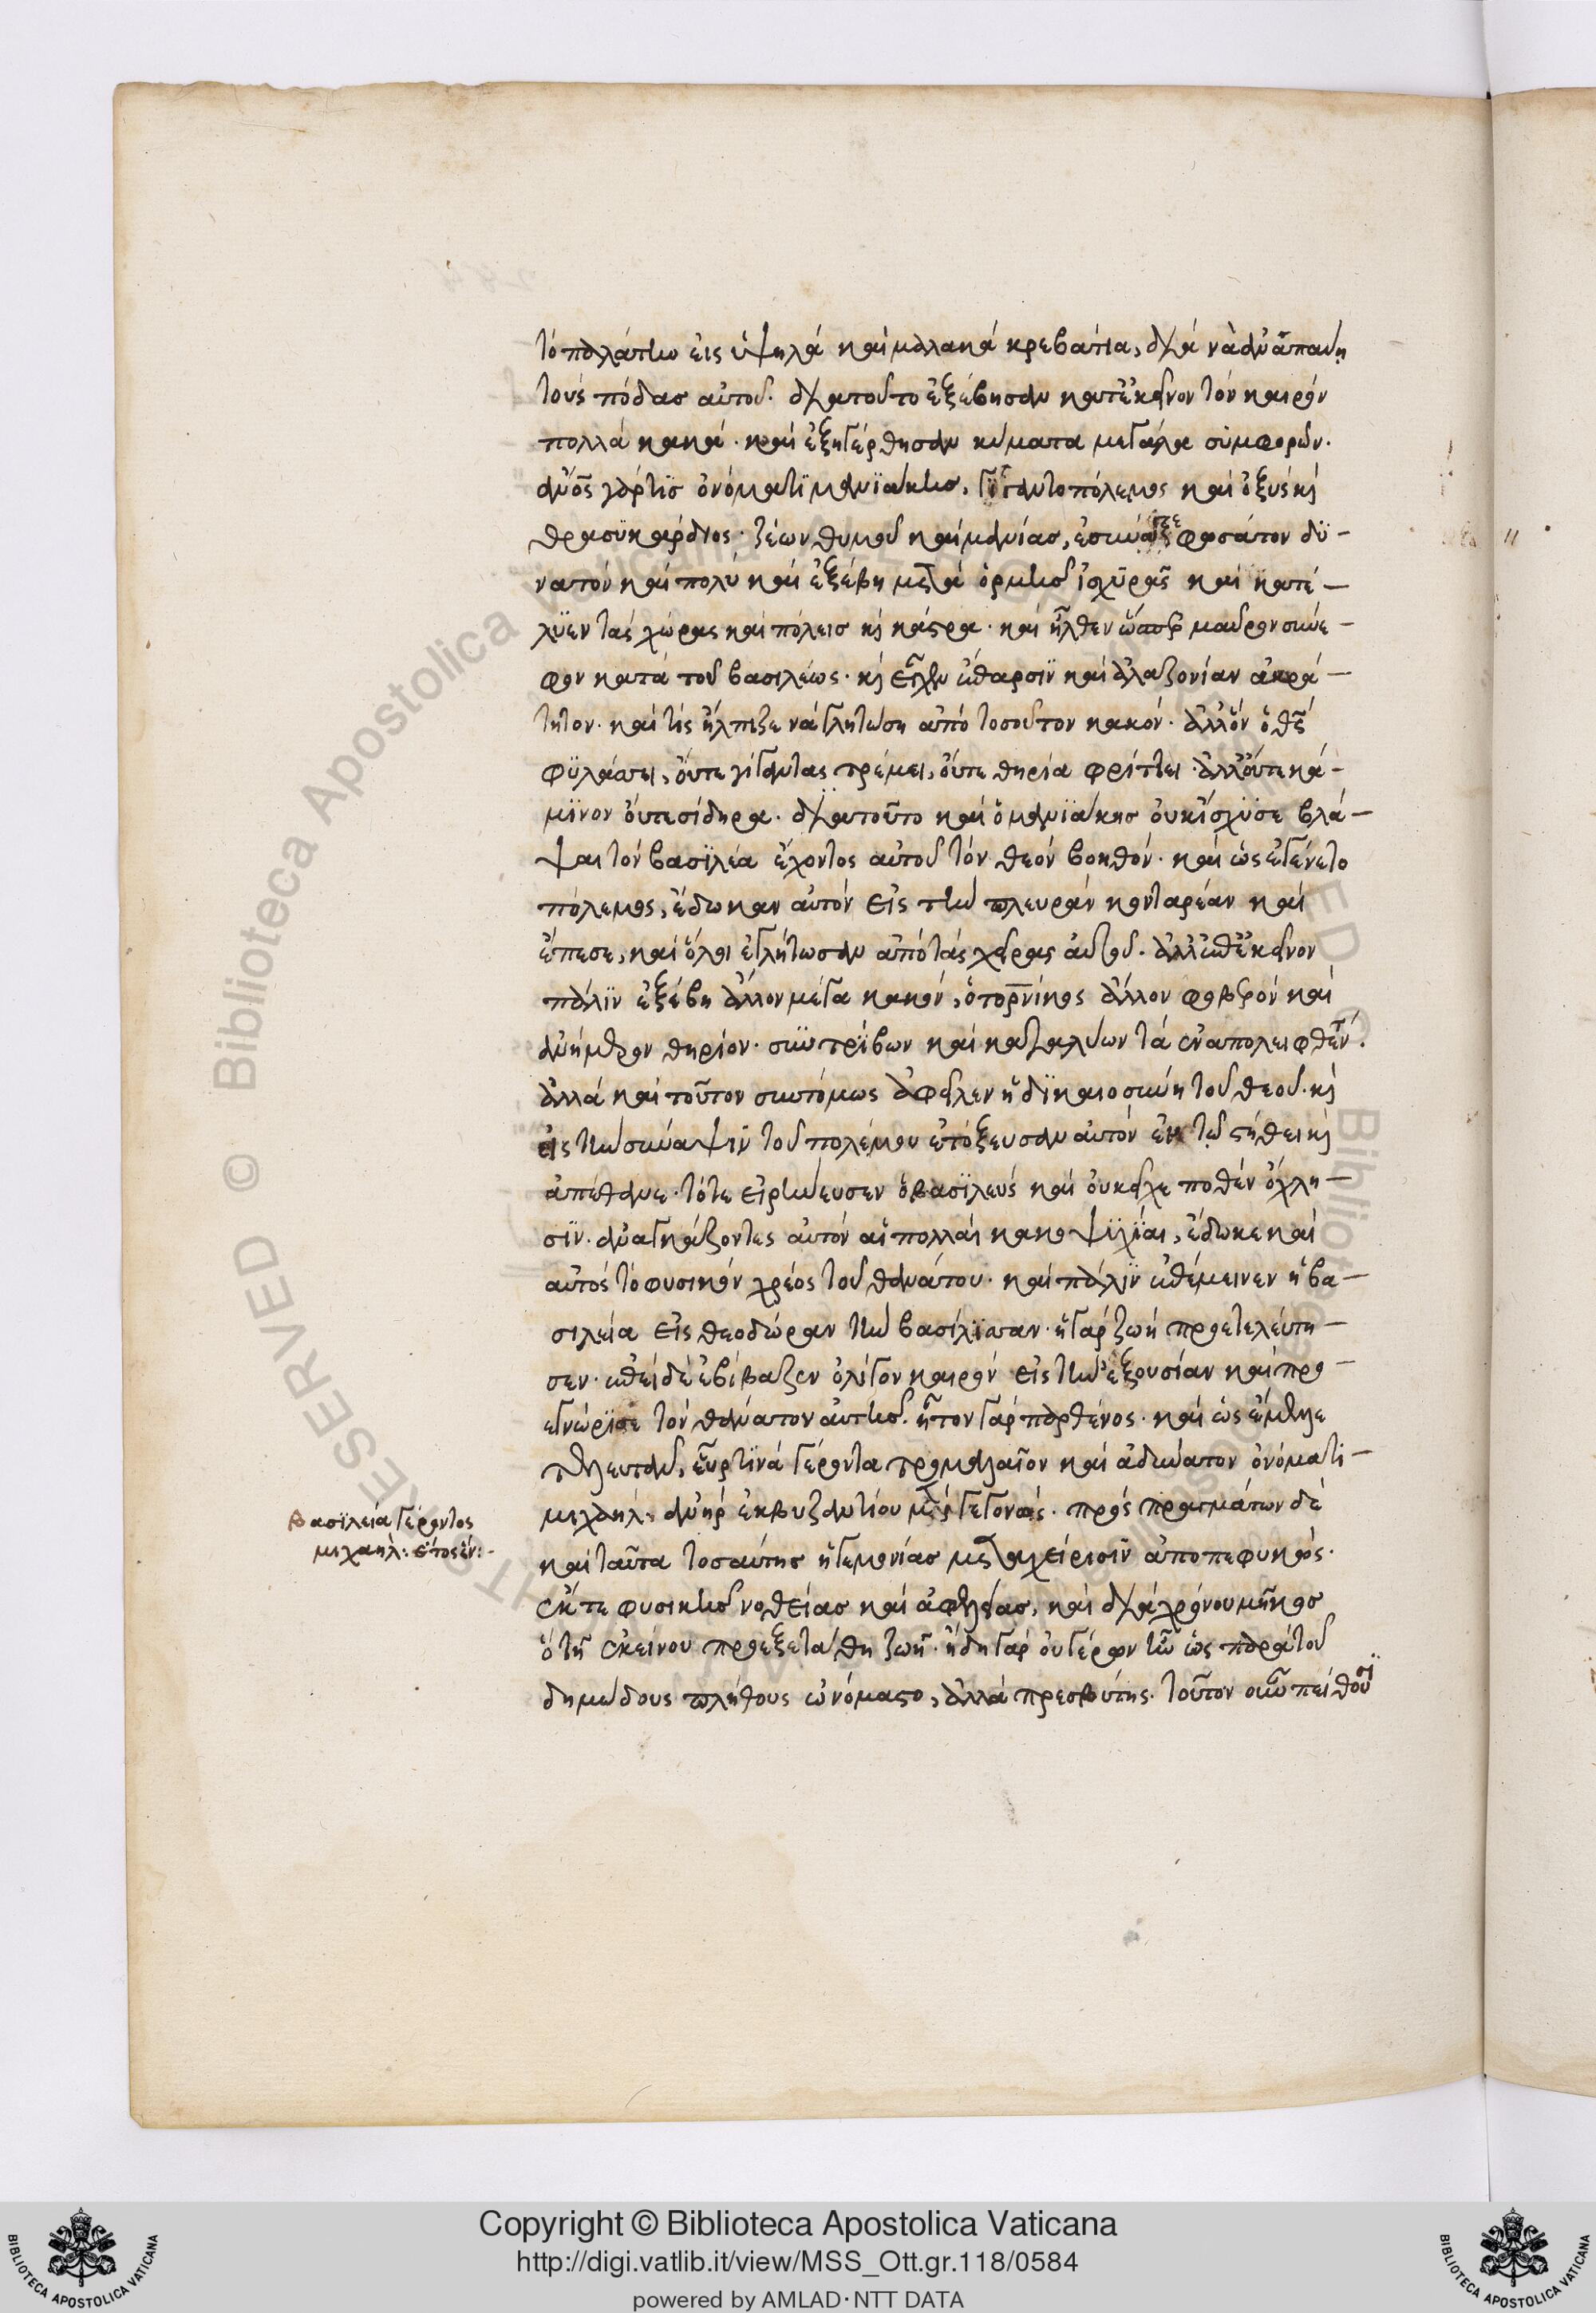 τὸ παλάτιν εἰς ὑψηλὰ καὶ μαλακὰ κρεβάτια, διὰ νὰ ἀναπαύῃ
τοὺς πόδας αὐτοῦ. διατοῦτο ἐξέβησαν κατ' ἐκεῖνον τὸν καιρὸν
πολλὰ κακά. καὶ ἐξηγέρθησαν κύματα μεγάλα συμφορῶν.
ἀνὸς γάρ τις ὀνόματι μανϊάκης, γιγαντοπόλεμος καὶ ὀξὺς κὶ
θρασϋκάρδιος. ζέων θυμοῦ καὶ μανίας, ἐσύναξε φοσάτον δϋ-
νατὸν καὶ πολὺ καὶ ἐξέβη μετὰ ὁρμῆς ἰσχϋρᾶς καὶ κατέ-
λϋεν τὰς χώρας καὶ πόλεις κὶ κάστρα. καὶ ἦλθεν ὥσπερ μαῦρον σύνε-
φον κατὰ τοῦ βασιλέως. κὶ εἶχεν ἔπαρσιν καὶ ἀλαζονίαν ἀκρά-
τητον. καὶ τίς ἤλπιζε νὰ γλητώση ἀπὸ τοσοῦτον κακόν. ἀλλ' ὃν ὁ θς
φϋλάσσει, οὔτε γίγαντας τρέμει, οὔτε θηρία φρίττει. ἀλλ' οὔτε κά-
μϊνον οὔτε σίδηρα. διατοῦτο καὶ ὁ μανϊάκης οὐκ ἴσχϋσε βλά-
ψαι τὸν βασϊλέα ἔχοντος αὐτοῦ τὸν θεὸν βοηθόν. καὶ ὡς ἐγένετο
πόλεμος, ἔδωκαν αὐτὸν εἰς τὴν πλευρὰν κονταρέαν καὶ
ἔπεσε, καὶ ὅλοι ἐγλήτωσαν ἀπὸ τὰς χεῖρας αὐτοῦ. ἀλλ' ἐπ' ἐκεῖνον
πάλϊν ἐξέβη ἄλλον μέγα κακόν, ὁ τορνίκος ἄλλον φοβερὸν καὶ
ἀνήμερον θηρίον. συντρίβων καὶ καταλύων τὰ ἐναπολειφθέν.
ἀλλὰ καὶ τοῦτον συντόμως ἀφεῖλεν ἡ δϊκαιοσύνη τοῦ θεοῦ. κὶ
εἰς τὴν σύναψϊν τοῦ πολέμου ἐτόξευσαν αὐτὸν ἐν τῷ στήθει κὶ
ἀπέθανε. τότε εἰρήνευσεν ὁ βασϊλεὺς καὶ οὐκ εἶχε ποθὲν ὄχλη-
σϊν. ἀναγκάζοντες αὐτὸν αἱ πολλαὶ κακοψϋχίαι, ἔδωκε καὶ
αὐτὸς τὸ φυσικὸν χρέος τοῦ θανάτου. καὶ πάλϊν ἀπέμεινεν ἡ βα-
σιλεία εἰς θεοδώραν τὴν βασίλϊσσαν. ἡ γὰρ ζωὴ προετελεύτη-
σεν. ἐπεὶ δὲ ἐβίβαζεν ὀλίγον καιρὸν εἰς τὴν ἐξουσίαν καὶ προ-
εγνώρϊσε τὸν θάνατον αὐτῆς. ἦτον γὰρ παρθένος. καὶ ὡς ἔμελλε
τελευτᾶν, εὗρ τϊνὰ γέροντα τρομαλαῖον καὶ ἀδύνατον ὀνόματι-
μιχαήλ. ἀνὴρ ἐκ βυζαντίου μὲν γεγονώς. πρὸς πραγμάτων δὲ
καὶ ταῦτα τοσαύτης ἡγεμονίας μεταχείρισϊν ἀποπεφυκώς.
ἔκ τε φυσικῆς νοθείας καὶ ἀφελείας, καὶ διὰ χρόνου μῆκος
ὃ τῆ ἐκείνου προεξετάθη ζωῆ. ἤδη γὰρ οὐ γέρων ἦν ὡς παρὰ τοῦ
δημώδους πλήθους ὠνόμαστο, ἀλλὰ πρεσβύτης. τοῦτον οὖν πείθουσϊ
βασϊλεία γέροντος
μιχαὴλ: ἔτος ἕν:-
Copyright © Biblioteca Apostolica Vaticana
http://digi.vatlib.it/view/MSS_Ott.gr.118/0584
powered by AMLAD·NTT DATA